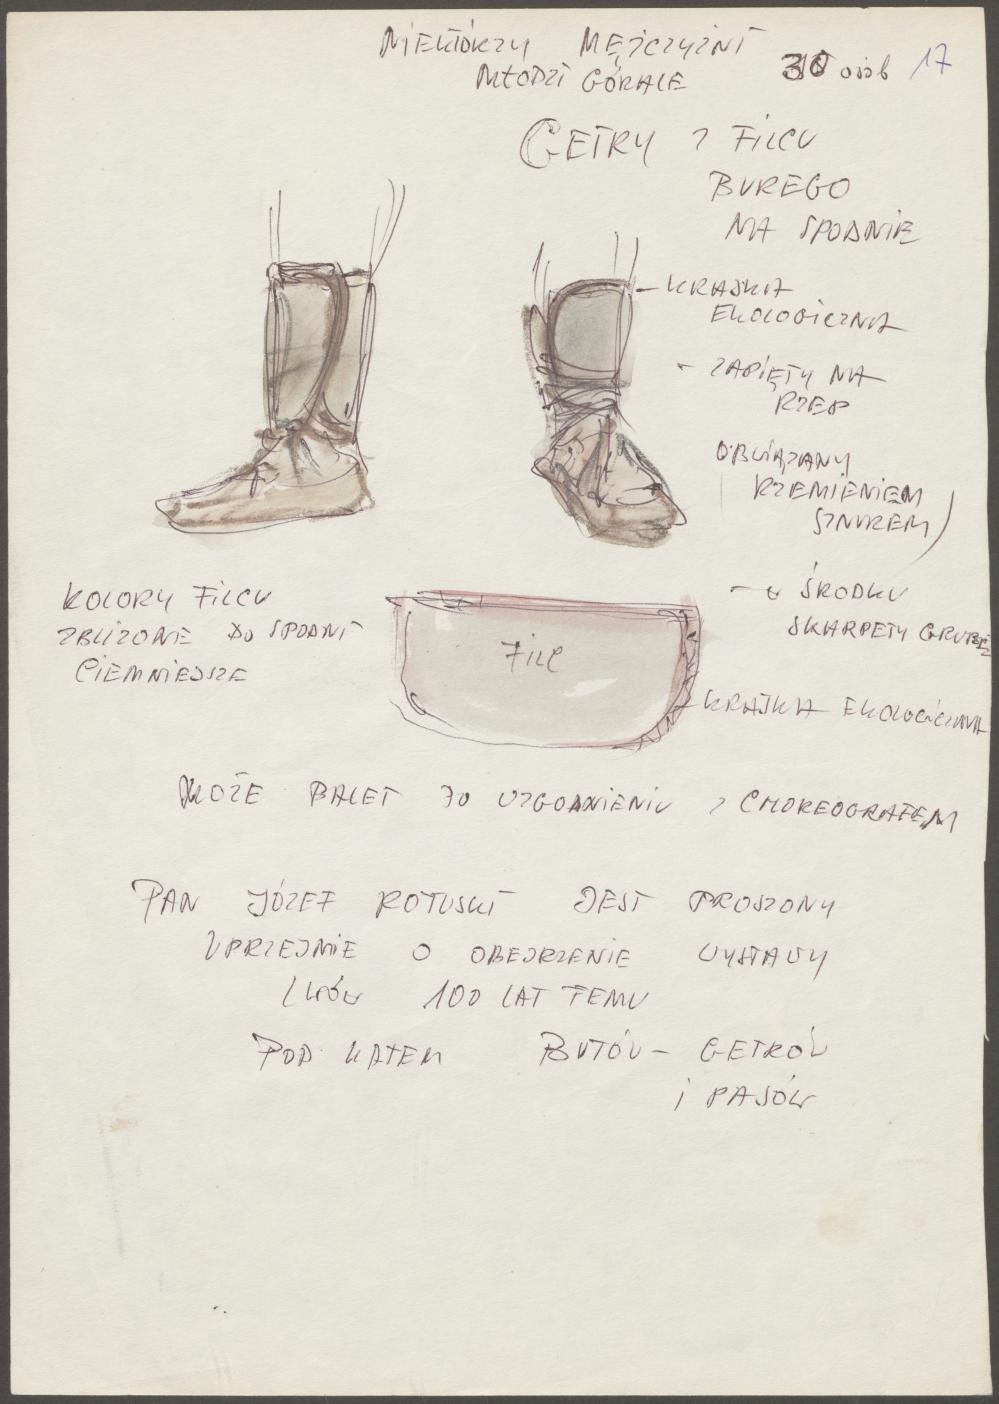 NIEKTÓRZY MĘŻCZYŹNI
MŁODZI GÓRALE
30 osób 17
GETRY Z FILCU
BUREGO
NA SPODNIE
KRAJKA
EKOLOGICZNA
- ZAPIĘTY NA
RZEP
OBWIĄZANY
RZEMIENIEM
SZNUREM)
- W ŚRODKU
SKARPETY GRUBE
KOLORY FILCU
ZBLIŻONE DO SPODNI
CIEMNIEJSZE
FILC
KRAJKA EKOLOGICZNA
MOŻE BALET DO UZGODNIENIU Z CHOREOGRAFEM
PAN JÓZEF ROTUSKI JEST PROSZONY
UPRZEJMIE O OBEJRZENIE WYSTAWY
LWÓW 100 LAT TEMU
POD KATEM BUTÓW - GETRÓW
I PASÓW